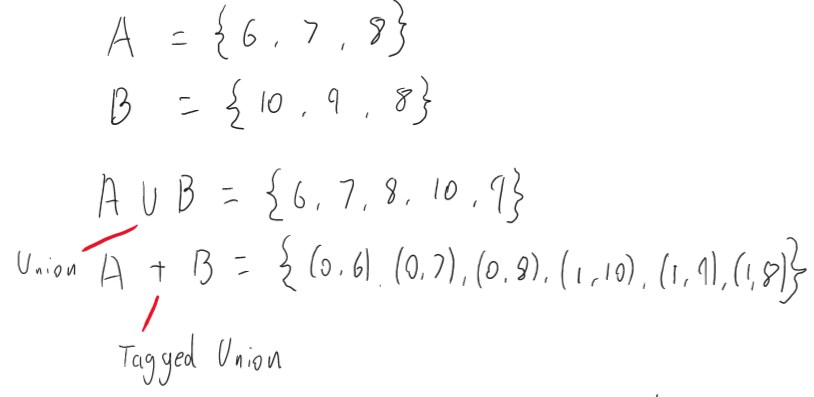 A = {6, 7, 8}
B = {10, 9, 8}
A ∪ B = {6, 7, 8, 10, 9}
Union
A + B = {(0, 6), (0, 7), (0, 8), (1, 10), (1, 9), (1, 8)}
Tagged Union